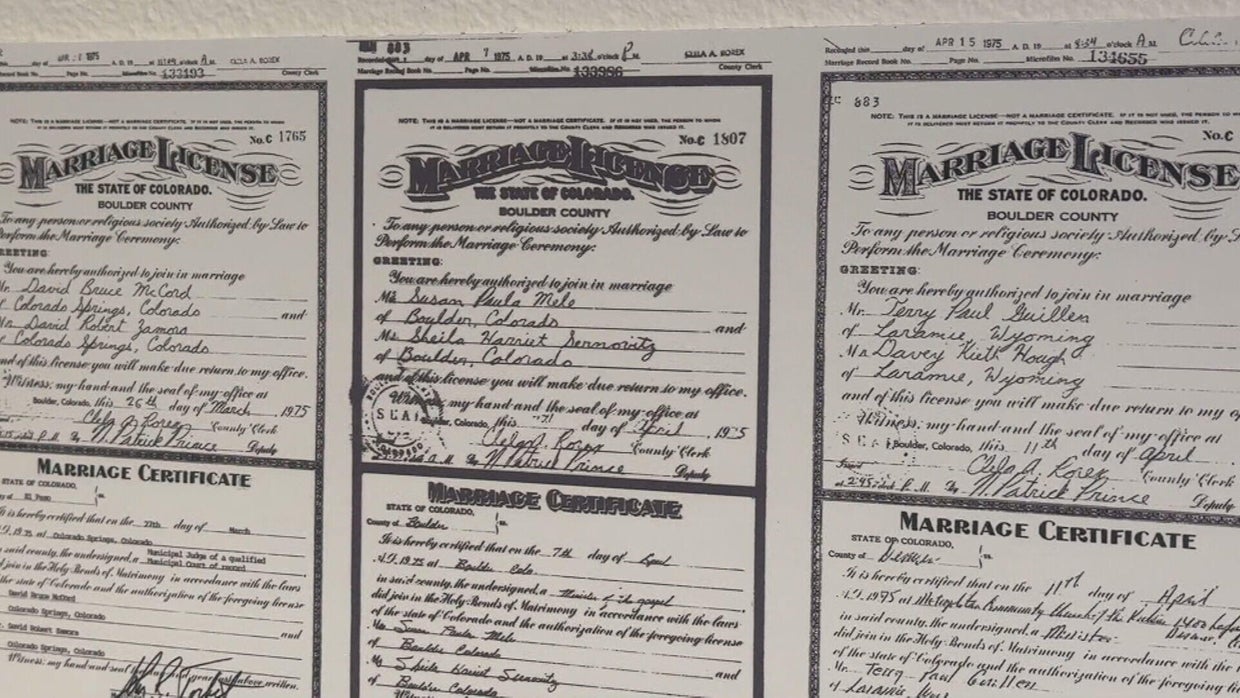 day of APR 1975 A. D. 19 at o'clock A M. CLELA A. ROREK
Record Book No. Page No. Microfilm No. 133193 County Clerk
NOTE: THIS IS A MARRIAGE LICENSE—NOT A MARRIAGE CERTIFICATE. IF IT IS NOT USED, THE PERSON TO WHOM
IT IS DELIVERED MUST RETURN IT PROMPTLY TO THE COUNTY CLERK AND RECORDER WHO ISSUED IT.
No. C 1765
MARRIAGE LICENSE
THE STATE OF COLORADO.
BOULDER COUNTY
To any person or religious society Authorized by Law to
Perform the Marriage Ceremony:
GREETING:
You are hereby authorized to join in marriage
Mr. David Bruce McCord
of Colorado Springs, Colorado and
Mr. David Robert Zamora
of Colorado Springs, Colorado
and of this license you will make due return to my office.
Witness, my hand and the seal of my office at
Boulder, Colorado, this 26th day of March, 1975
Clela A. Rorex County Clerk
P. M. By N. Patrick Prince Deputy
MARRIAGE CERTIFICATE
STATE OF COLORADO,
ss.
El Paso
It is hereby certified that on the 27th day of March
1975 at Colorado Springs, Colorado
said county, the undersigned, a Municipal Judge of a qualified
Municipal Court of record
join in the Holy Bonds of Matrimony in accordance with the laws
the state of Colorado and the authorization of the foregoing license
David Bruce McCord
Colorado Springs, Colorado
and
David Robert Zamora
Colorado Springs, Colorado
Witness, my hand and seal last above written.
883
Recorded this day of APR 7 1975 A. D. 19 at 3:38 o'clock P M. CLELA A. ROREX
Marriage Record Book No. Page No. Microfilm No. 133986 County Clerk
NOTE: THIS IS A MARRIAGE LICENSE—NOT A MARRIAGE CERTIFICATE. IF IT IS NOT USED, THE PERSON TO WHOM
IT IS DELIVERED MUST RETURN IT PROMPTLY TO THE COUNTY CLERK AND RECORDER WHO ISSUED IT.
No. C 1807
MARRIAGE LICENSE
THE STATE OF COLORADO.
BOULDER COUNTY
To any person or religious society Authorized by Law to
Perform the Marriage Ceremony:
GREETING:
You are hereby authorized to join in marriage
Ms Susan Paula Mele
of Boulder, Colorado and
Ms Sheila Harriet Sernovitz
of Boulder, Colorado
and of this license you will make due return to my office.
Witness, my hand and the seal of my office at
SEAL
Boulder, Colorado, this 7 day of April, 1975
Clela A. Rorex County Clerk
M. By N. Patrick Prince Deputy
MARRIAGE CERTIFICATE
STATE OF COLORADO,
ss.
County of Boulder
It is hereby certified that on the 7th day of April
A.D. 1975 at Boulder Colo.
in said county, the undersigned, a Minister of the gospel
did join in the Holy Bonds of Matrimony in accordance with the laws
of the state of Colorado and the authorization of the foregoing license
Ms Susan Paula Mele
of Boulder Colorado
and
Ms Sheila Harriet Sernovitz
of Boulder Colorado
Recorded this day of APR 15 1975 A. D. 19 at 8:34 o'clock A M.
Marriage Record Book No. Page No. Microfilm No. 134655
883
NOTE: THIS IS A MARRIAGE LICENSE—NOT A MARRIAGE CERTIFICATE. IF IT IS NOT USED, THE PERSON TO
IT IS DELIVERED MUST RETURN IT PROMPTLY TO THE COUNTY CLERK AND RECORDER WHO ISSUED IT.
No. C
MARRIAGE LICENSE
THE STATE OF COLORADO.
BOULDER COUNTY
To any person or religious society Authorized by
Perform the Marriage Ceremony:
GREETING:
You are hereby authorized to join in marriage
Mr. Terry Paul Guillen
of Laramie, Wyoming
Mr Davey Kieth Hough
of Laramie, Wyoming
and of this license you will make due return to my
Witness, my hand and the seal of my office at
SEAL
Boulder, Colorado, this 11th day of April
Issued
Clela A. Rorex County Clerk
at 2:45 o'clock P. M. By N. Patrick Prince Deputy
MARRIAGE CERTIFICATE
STATE OF COLORADO,
ss.
County of Denver
It is hereby certified that on the 11th day of April
A.D. 1975 at Metropolitan Community Church of the Rockies
in said county, the undersigned, a Minister
did join in the Holy Bonds of Matrimony in accordance with the
of the state of Colorado and the authorization of the foregoing
Mr. Terry Paul Guillen
of Laramie